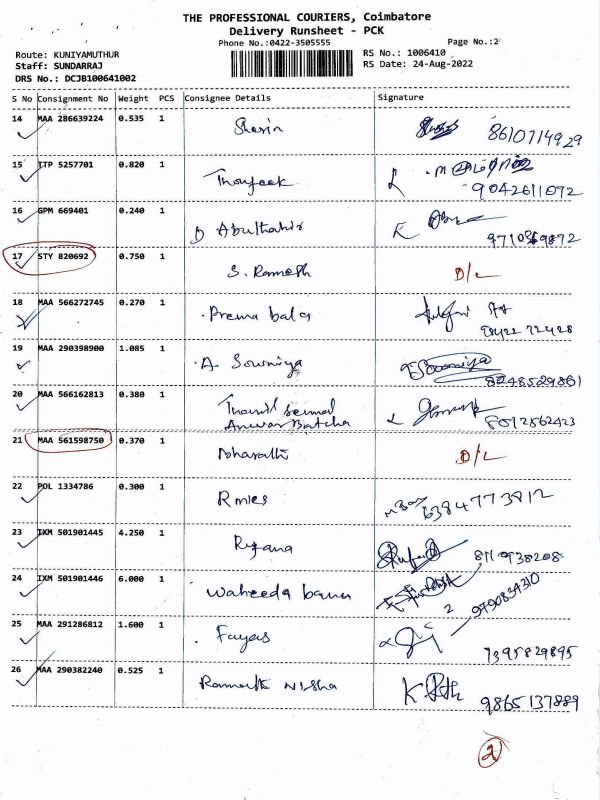 THE PROFESSIONAL COURIERS, Coimbatore
Delivery Runsheet - PCK
Phone No.:0422-3505555
Page No.:2
Route: KUNIYAMUTHUR
RS No.: 1006410
Staff: SUNDARRAJ
RS Date: 24-Aug-2022
DRS No.: DCJB100641002
S No Consignment No Weight PCS Consignee Details Signature
14 MAA 286639224 0.535 1 8610714929
15 ITP 5257701 0.820 1 Thoufeek 9042611072
16 GPM 669401 0.240 1 D Abulthahir
17 STY 820692 0.750 1 S. Ramesh D/L
18 MAA 566272745 0.270 1 Prema bala
19 MAA 290398900 1.085 1 A. Sowmiya Sowmiya 8248529861
20 MAA 566162813 0.380 1 8012562423
Anwar Batcha
21 MAA 561598750 0.370 1 Bharathi D/L
22 POL 1334786 0.300 1 6384773812
23 IXM 501901445 4.250 1 Ryana 8110938208
24 IXM 501901446 6.000 1 Waheeda banu
25 MAA 291286812 1.600 1 Fayas 7395829895
26 MAA 290382240 0.525 1 Nisha 9865137889
2